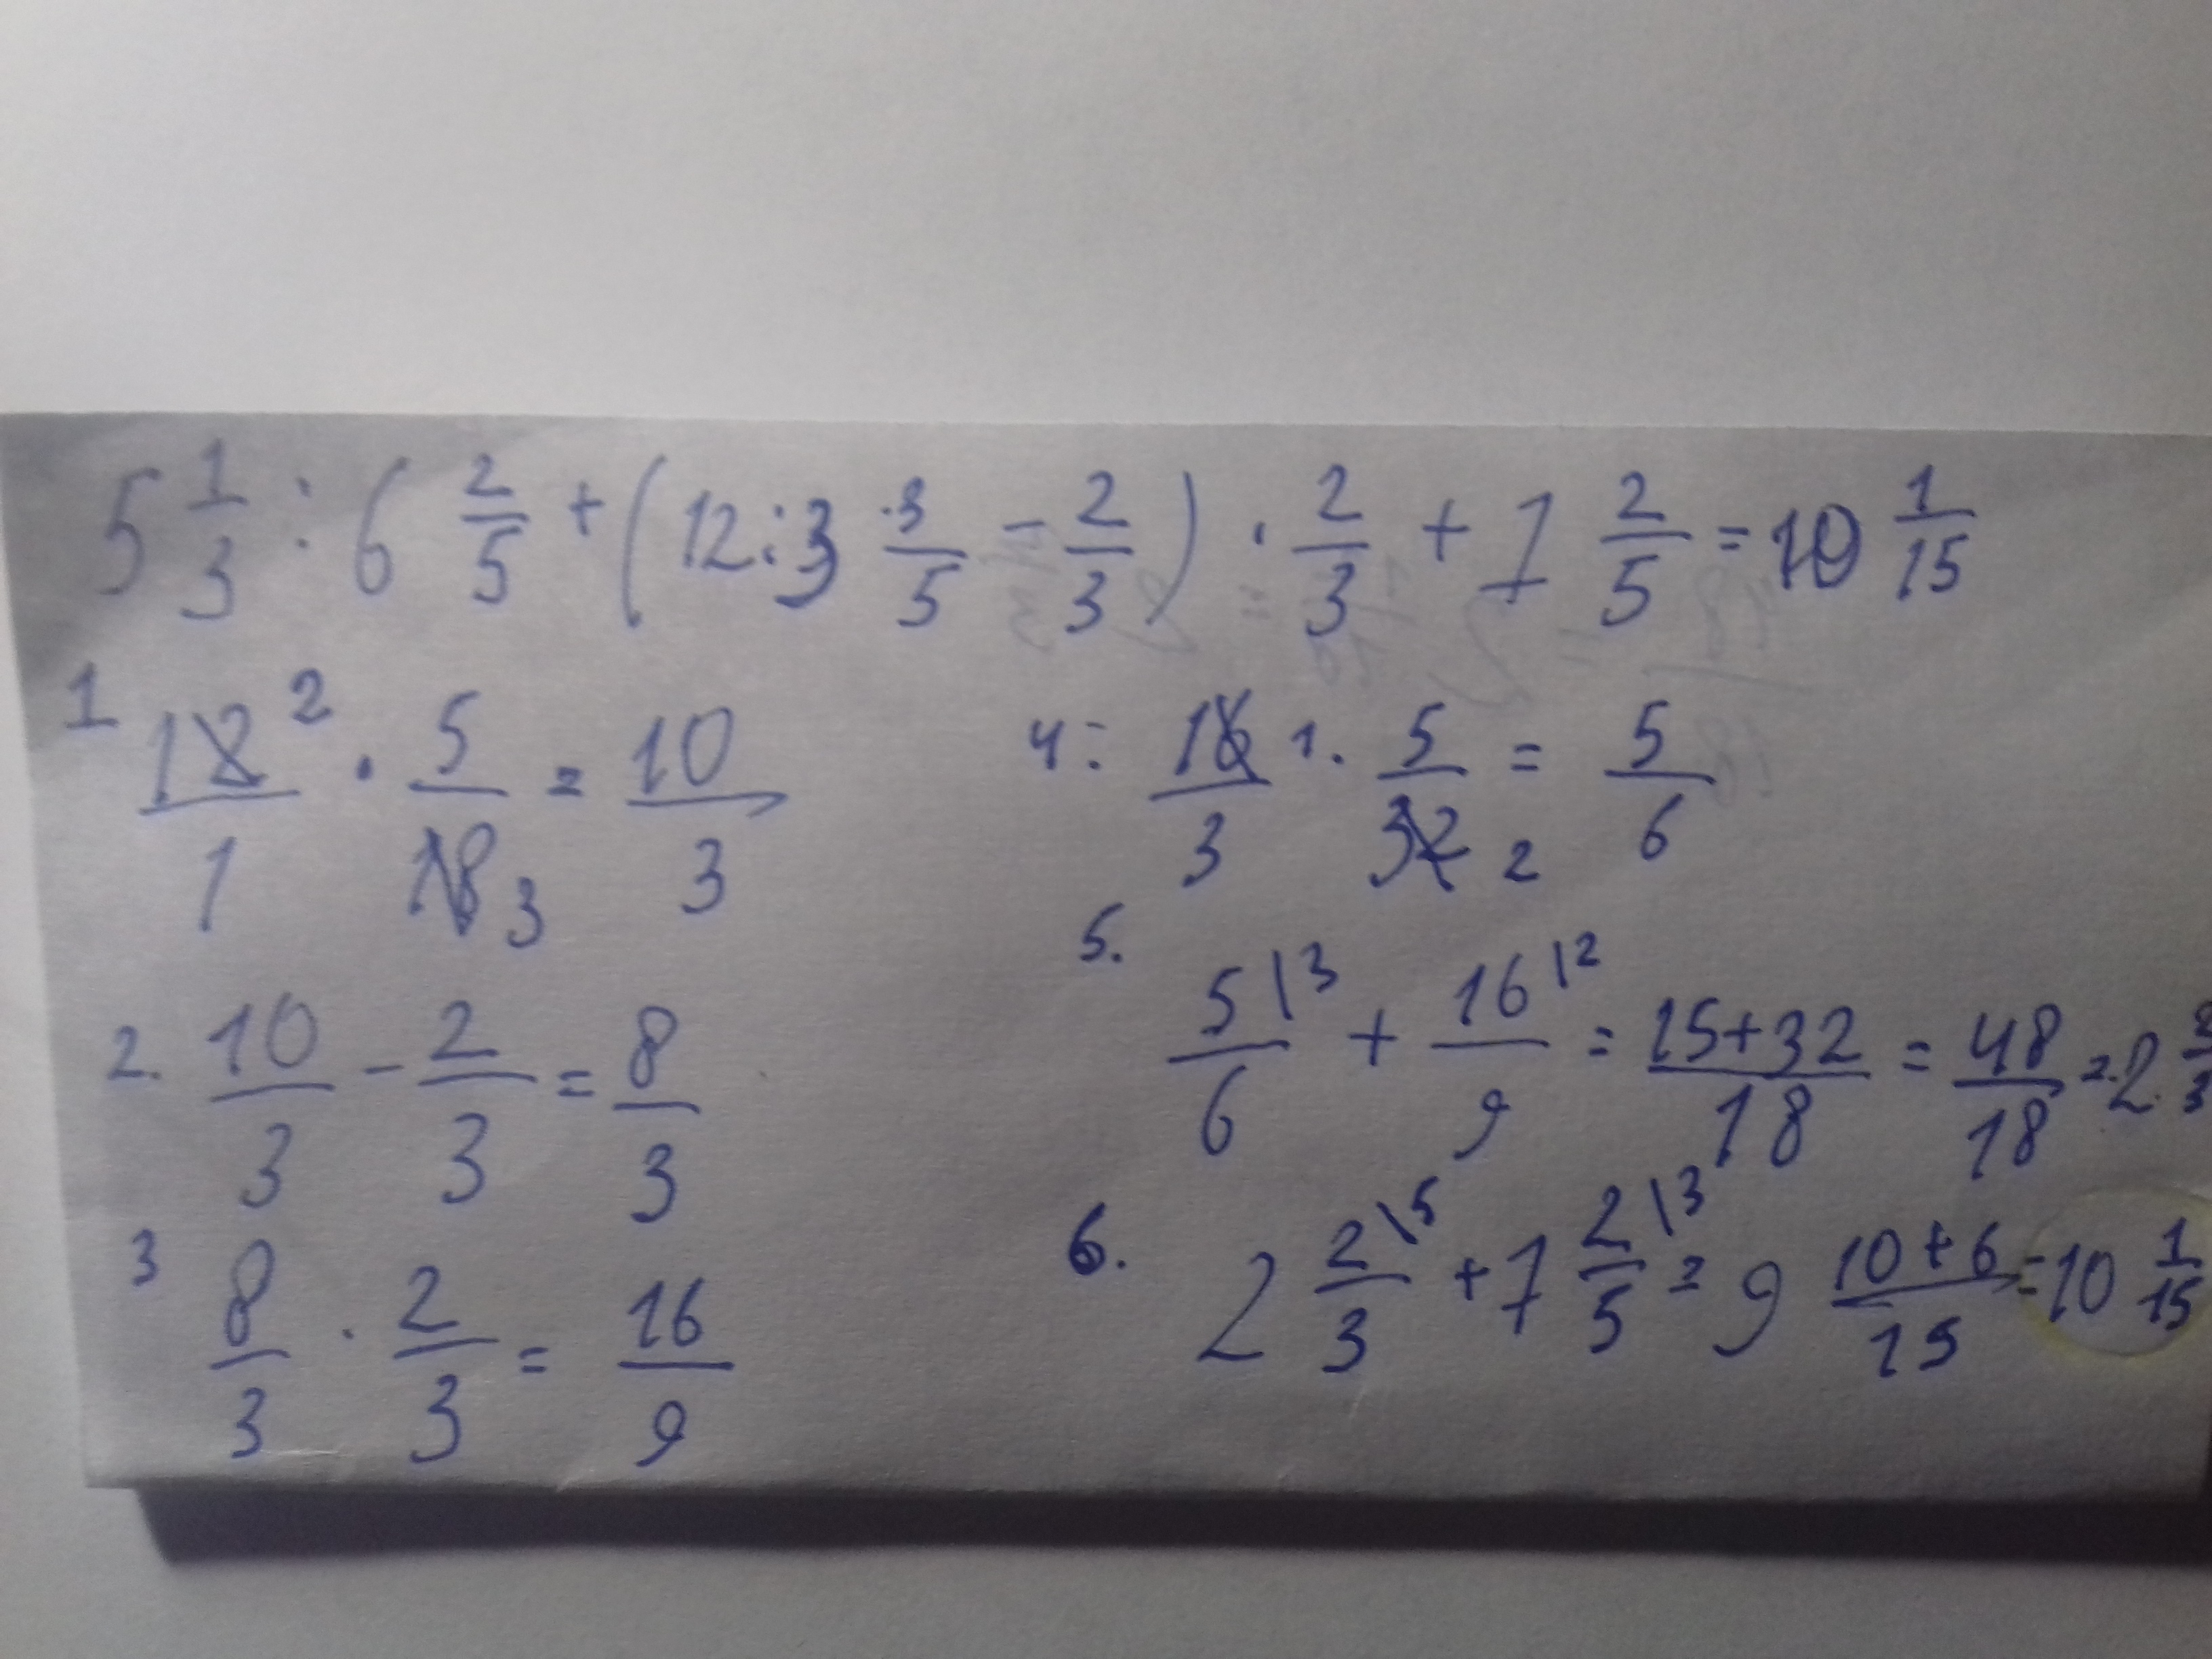 5 1/3 : 6 2/5 + (12 : 3 3/5 - 2/3) · 2/3 + 7 2/5 = 10 1/15
1 12/1 2 · 5/18 3 = 10/3
2. 10/3 - 2/3 = 8/3
3 8/3 · 2/3 = 16/9
4: 16/3 1 · 5/32 2 = 5/6
5.
5\3/6 + 16\2/9 = 15+32/18 = 48/18 = 2 2/3
6. 2 2\5/3 + 7 2\3/5 = 9 10+6/15 = 10 1/15